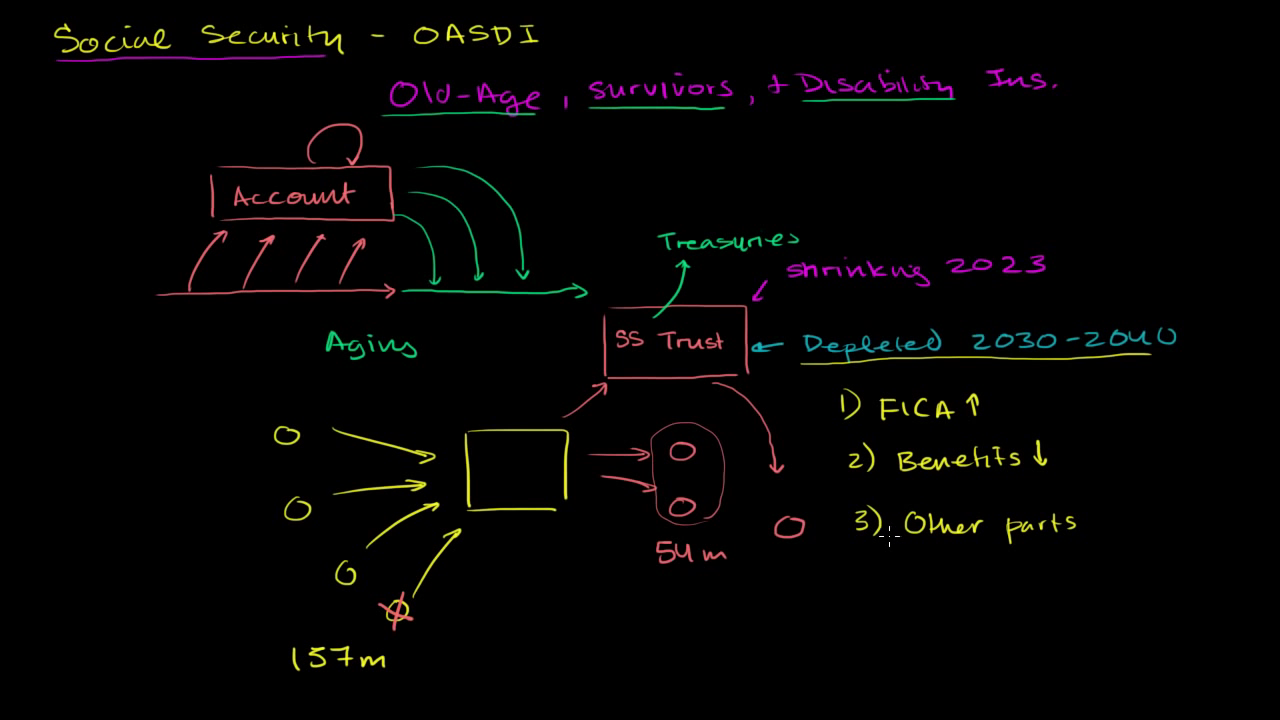 Social Security - OASDI
Old-Age, survivors, + Disability Ins.
Account
Treasuries
shrinking 2023
Aging
SS Trust
Depleted 2030-2040
1) FICA ↑
2) Benefits ↓
3) Other parts
54 m
157m